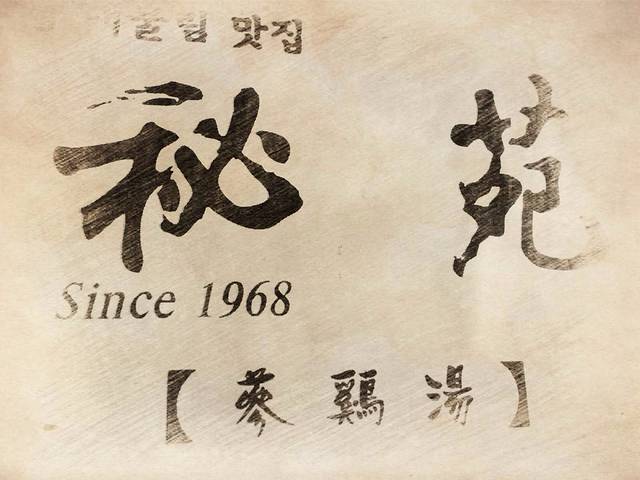 맛집
秘苑
Since 1968
【蔘鷄湯】